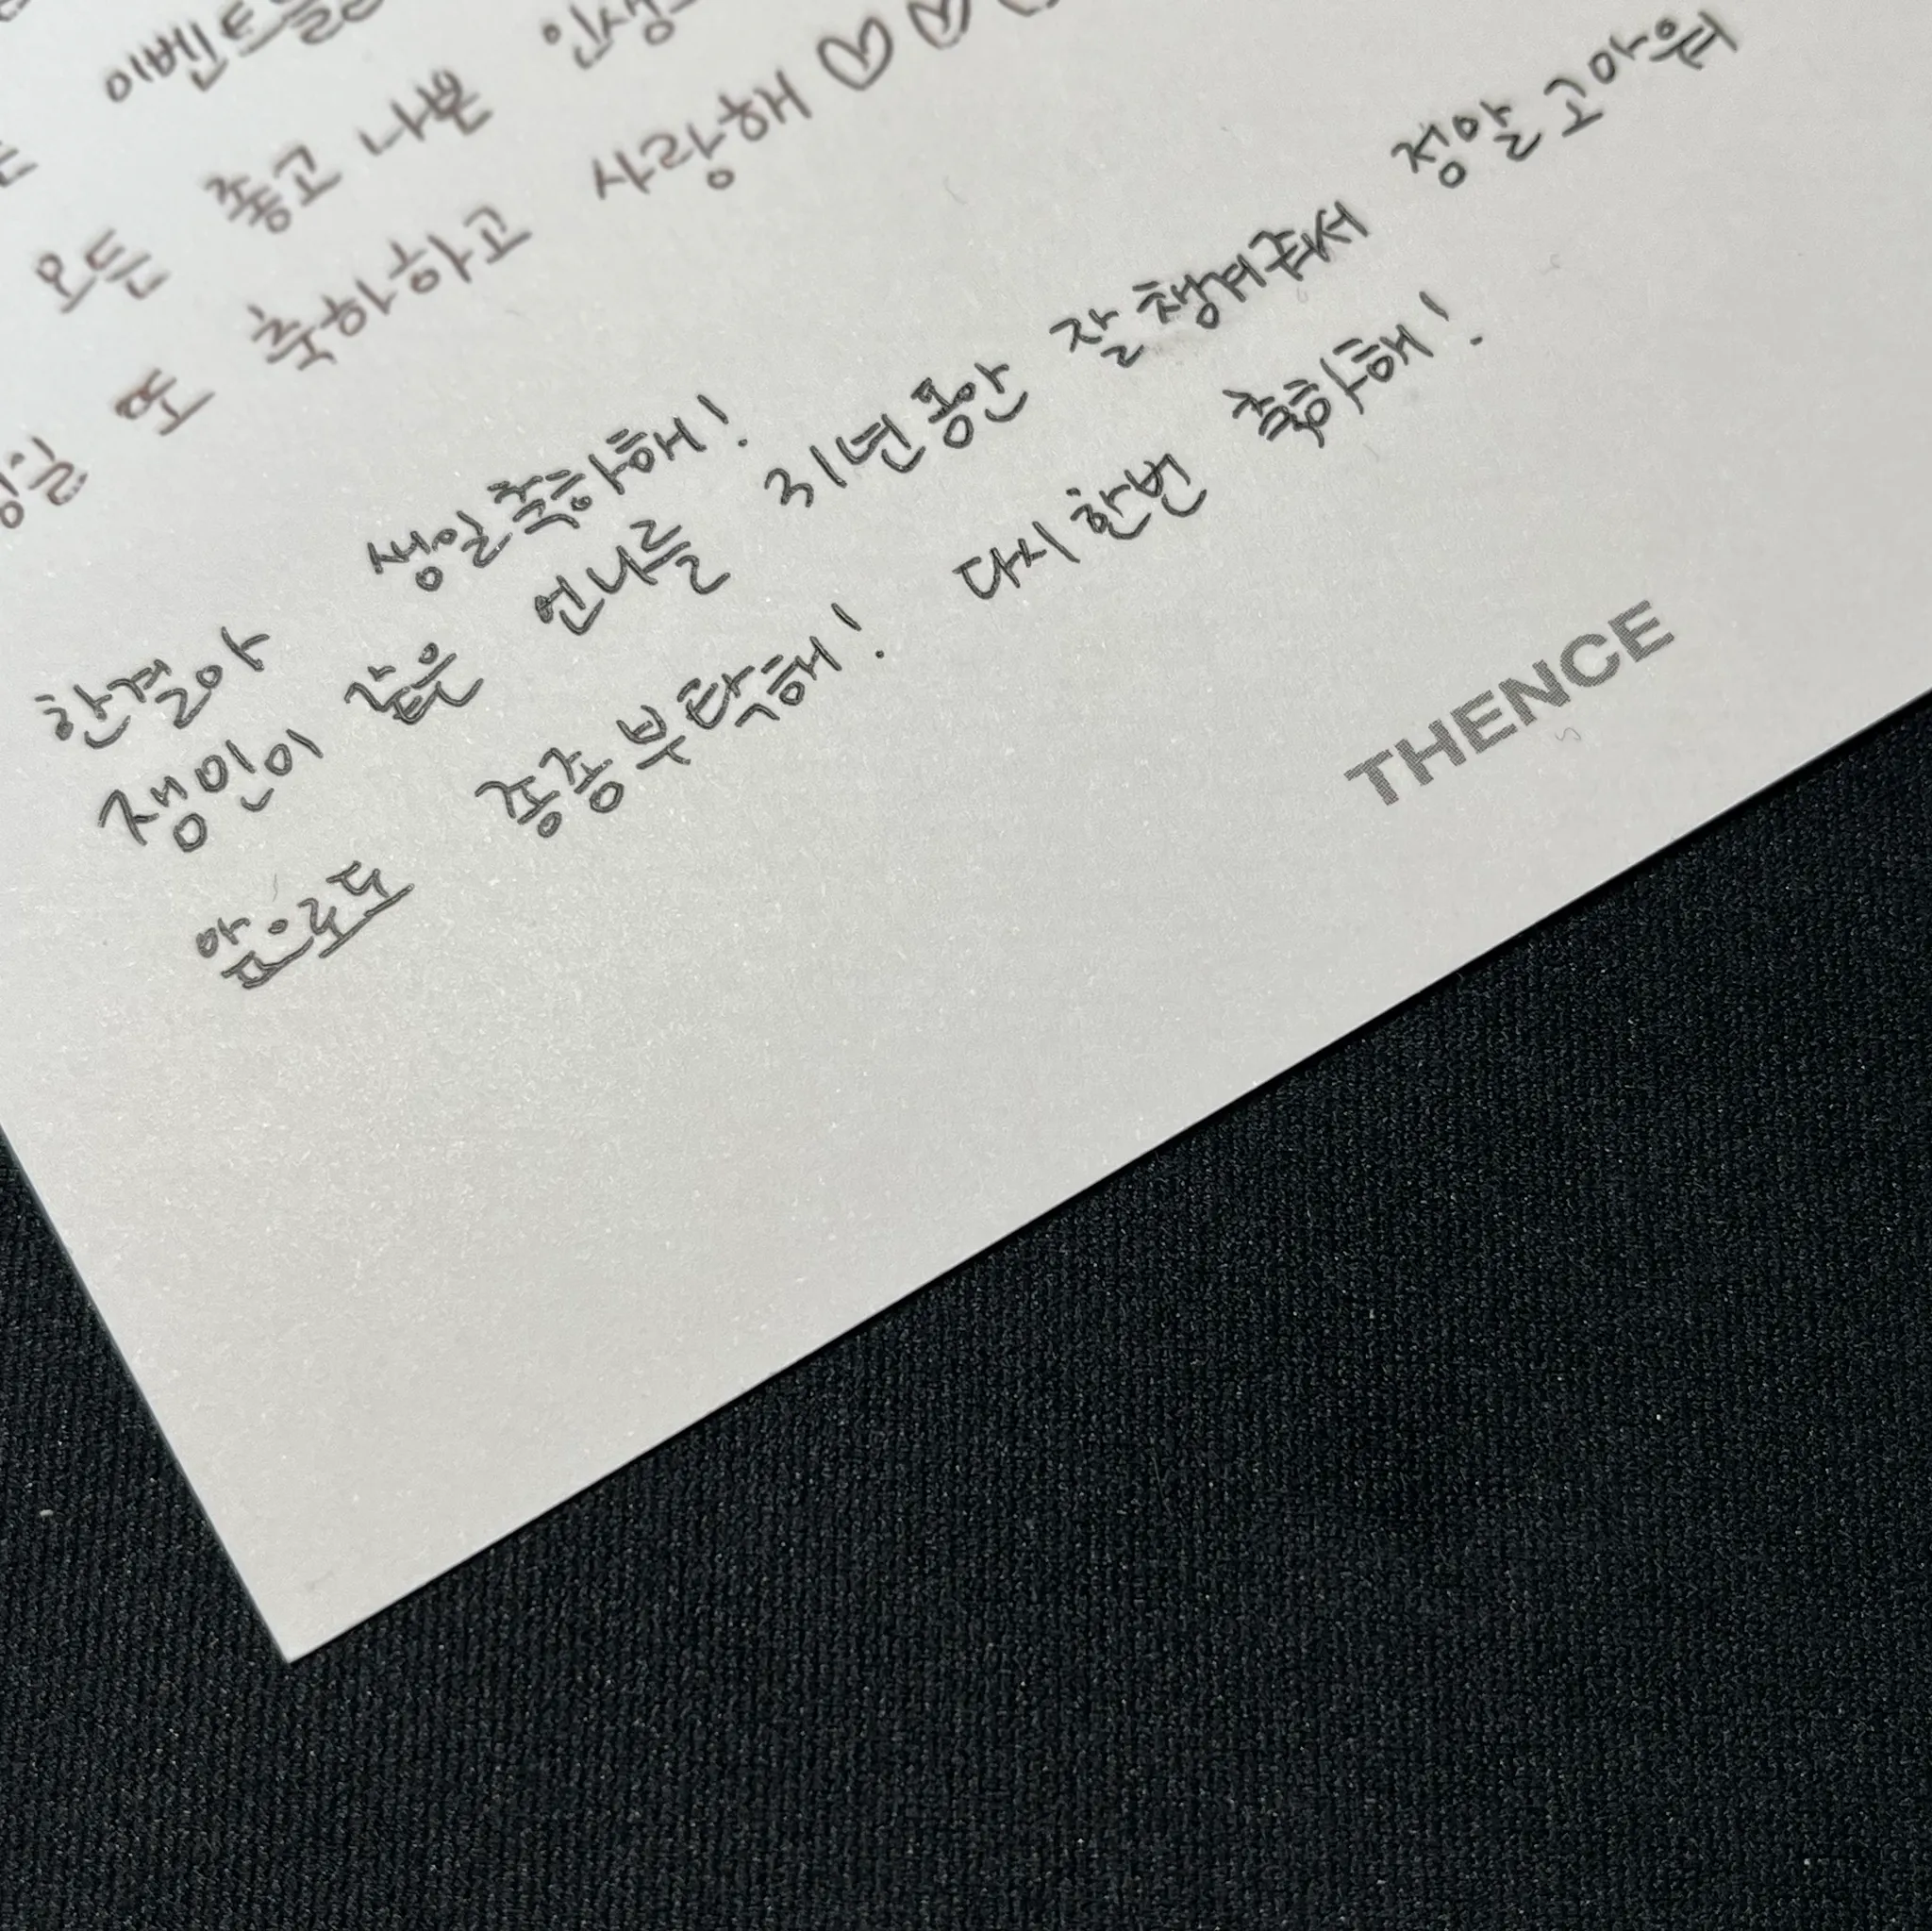 이벤트들
모든 좋고 나쁜 인생
생일 또 축하하고 사랑해 ♡♡♡
한결아 생일축하해!
잼민이 같은 언니를 31년동안 잘 챙겨줘서 정말 고마워
앞으로도 종종 부탁해! 다시한번 축하해!
THENCE